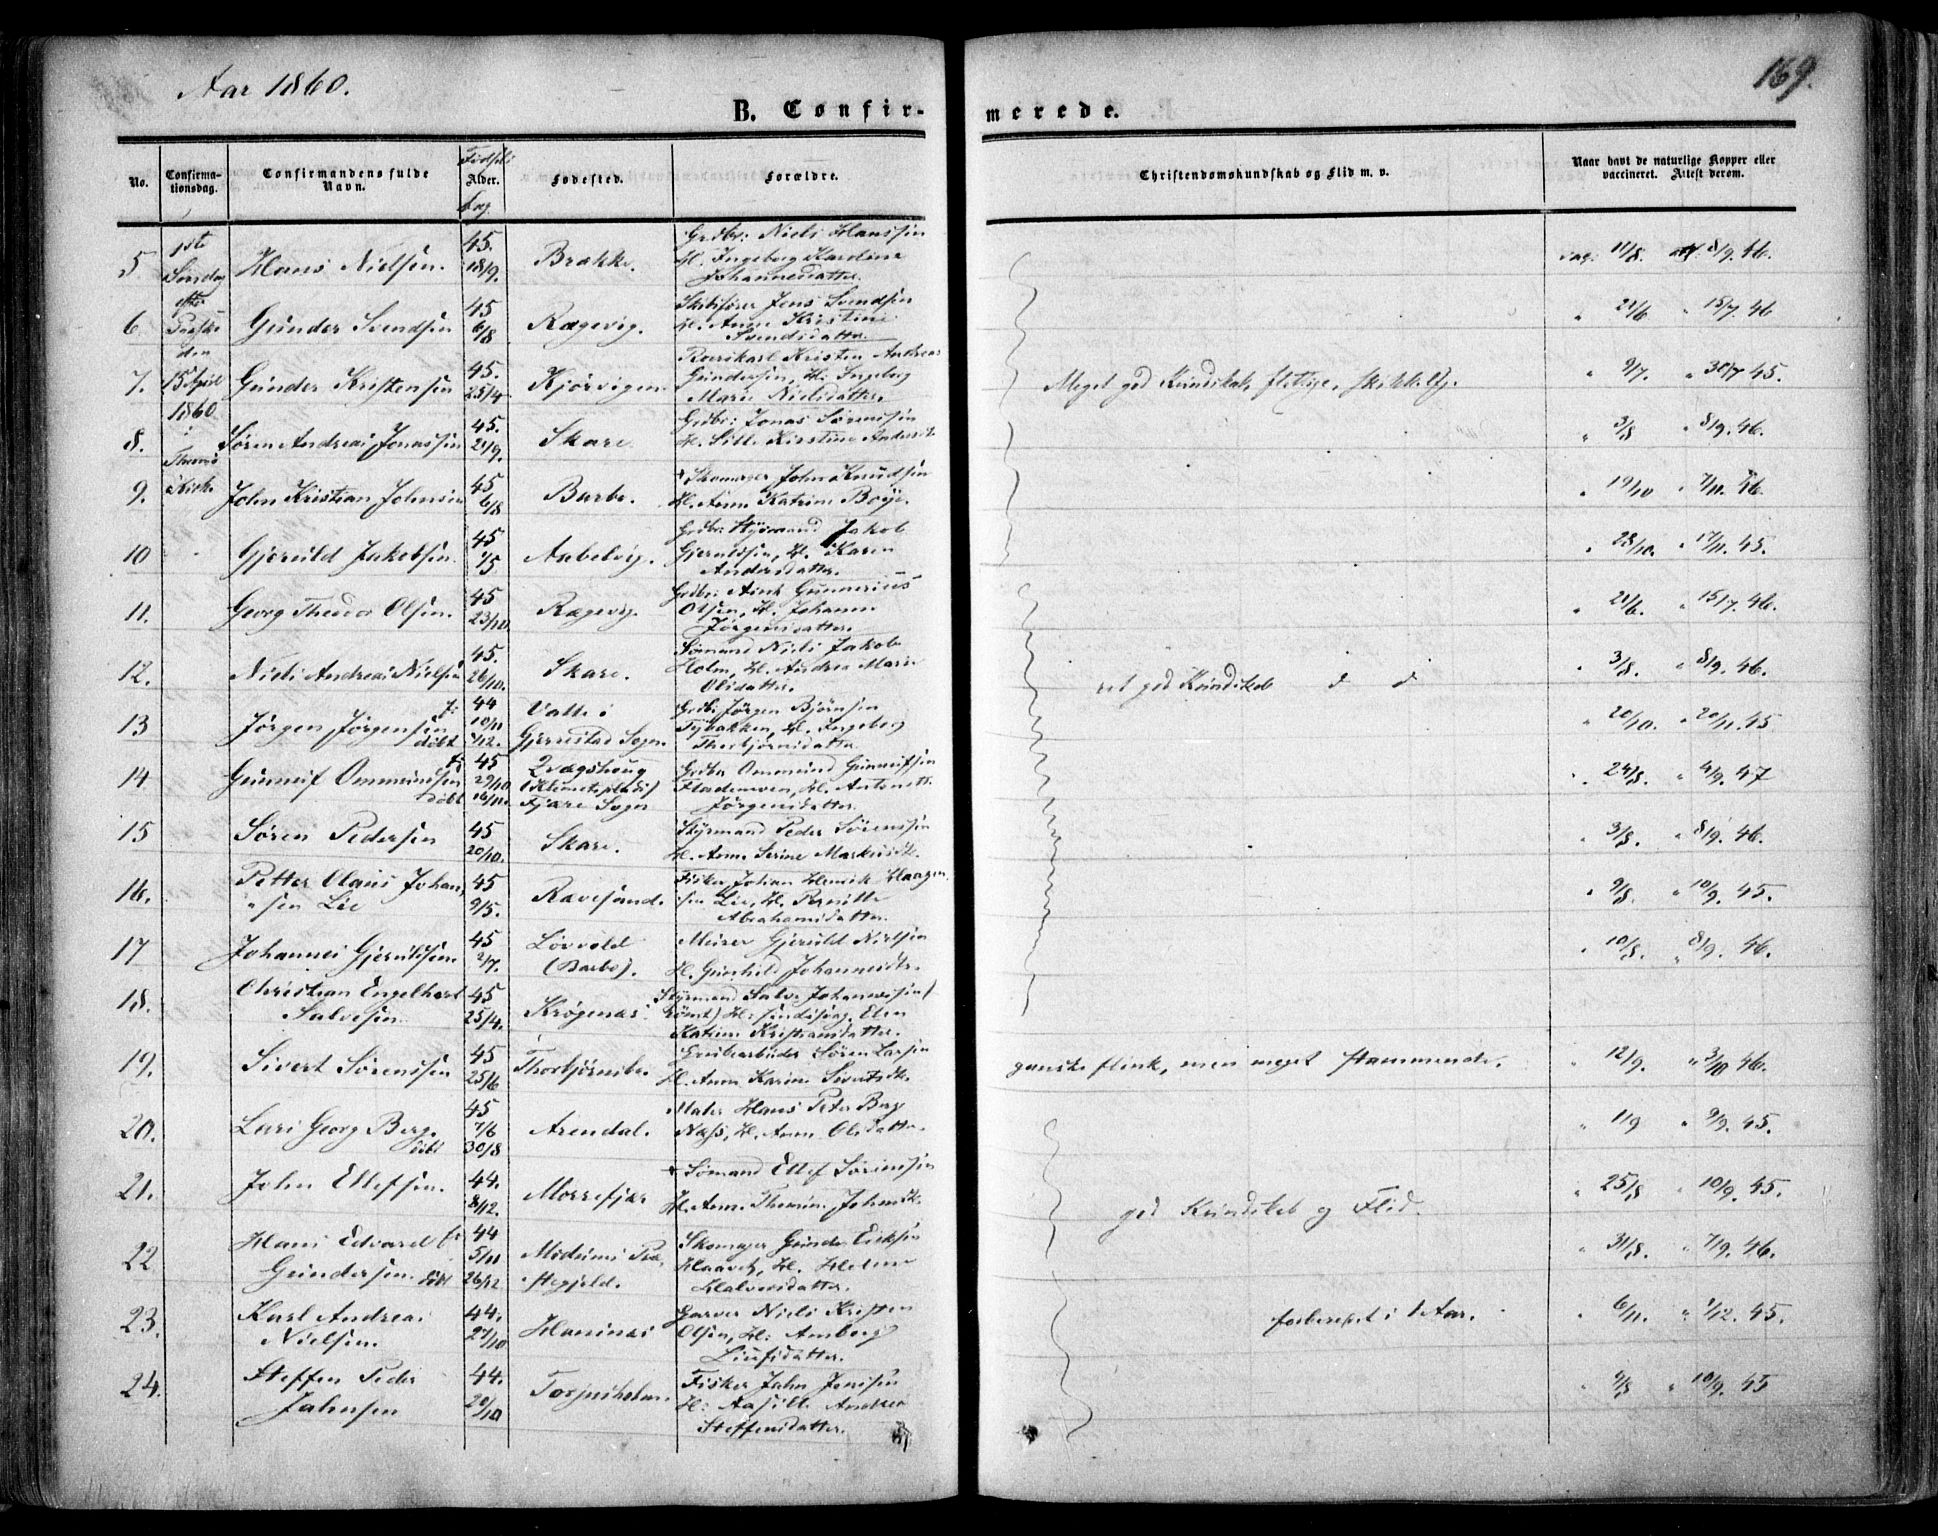 Aar 1860.
169.
B. Confir-
merede.
No.
Confirma-
tionsdag.
Confirmandens fulde
Navn.
Fødsels
Alder.
Dag
Fødested.
Forældre.
Christendomskundskab og Flid m. v.
Naar havt de naturlige Kopper eller
vaccineret. Attest derom.
1ste
Søndag
efter
Paaske
den
15 April
1860
i
Kirke
5 Hans Nielsen. 45. 18/9. Brække. Grdbr: Niels Hanssen
H. Ingeborg Karoline
Johannesdatter.
vac. 11/8. att. 8/9. 46.
6 Gunder Svendsen 45 6/8 Rægevig. Skibsfører Jens Svendsen
H. Anne Kristine
Svendsdatter.
" 21/6 " 15/7. 46
7. Gunder Kristensen 45. 25/4 Kjørvigen. Kristen Andreas
Gundersen, H. Ingeborg
Marie Nielsdatter.
Meget god Kundskab, flittige, skikkelig.
" 9/7. " 30/7 45.
8. Søren Andreas Jonassen 45. 21/9. Skare. Grdbr: Jonas Sørenssen
H. Sille Kirstine Andersd.
" 3/8 " 8/9. 46.
9. John Kristian Johnsen 45 6/8 Barbo. + Skomager John Knudsen
H. Anne Katrine Boye.
" 19/10 " 7/11. 46.
10 Gjeruld Jakobsen. 45 1/5 Aabelvig. Grdbr: Styrmand Jakob
Gjeruldsen, H. Karen
Andersdatter.
" 28/10. " 17/11. 45.
11. Georg Theodor Olsen. 45 23/10. Rægevig. Grdbr: Gunnerius
Olsen, H. Johanne
Jørgensdatter.
" 21/6. " 15/7. 46.
12. Niels Andreas Nielsen 45. 26/10. Skare. Sømand Niels Jakob
Holm, H. Andrea Marie
Olsdatter.
ret god Kundskab d d
" 3/8. " 8/9. 46.
13 Jørgen Jørgensen f: 44 10/11
døbt 1/12. Valle i
Gjerrestad Sogn. Grdbr: Jørgen Bjørnsen
H. Ingeborg
Thorbjørnsdatter
" 20/10. " 20/11. 45
14 Gunneif Ommundsen f: 45 29/10
døbt 16/11.
Fjære Sogn Grdbr Ommund Gunneifsen
H. Antonette
Jørgensdatter.
" 24/8. " 4/9. 47
15 Søren Pedersen 45 20/10. Skare. Styrmand Peder Sørenssen
H. Anne Serine Markusdt.
" 3/8. " 8/9. 46.
16. Petter Olaus Johan-
sen Lie 45 9/5. Rævesand. Fisker Johan Henrik Haagen-
sen Lie, H. Pernille
Abrahamsdatter.
" 9/8. " 10/9. 45.
17 Johannes Gjeruldsen. 45 2/7. Løvvold
(Barbo). Murer Gjeruld Nielsen
H. Gunhild Johannesdtr.
" 10/8. " 8/9. 46.
18. Christian Engelhart
Salvesen 45 25/4. Krøgenæs. Styrmand Salve Johannessen
H: Elen
Katrine Kristiansdatter.
19. Sivert Sørenssen 45 25/6 Thorbjørnsbo. Grubearbeider Søren Larsen
H. Anne Karine Sivertsdt.
ganske flink, men meget stammende.
" 12/9. " 3/10 46.
20. Lars Georg Berg. 45 7/6
døbt 30/8 Arendal. Maler Hans Peter Berg
Næss, H. Anne Olsdatter.
" 1/9 " 9/9. 45.
21. John Ellefsen. 44. 8/12. Morrefjær + Sømand Ellef Sørensen
H. Anne Johnsdt.
god Kundskab og Flid.
" 25/8 " 10/9. 45.
22 Hans Edvard f:
Gundersen. døbt 44 5/11 26/12 Modums Præ-
stegjeld. Skomager Gunder Eriksen
H. Helene
Halvorsdatter.
" 31/8. " 7/9. 46.
23. Karl Andreas
Nielsen. 44. 27/10 Hansnæs Garver Niels Kristen
Olsen, H: Amborg
forberedet i 1 Aar.
" 6/11. " 1/12. 45.
24. Steffen Peder
Jahnsen 44. 20/10 Torjusholmen. Fisker Jahn Jenssen
H: Aasille Andrea
Steffensdatter.
" 9/8 " 10/9. 45